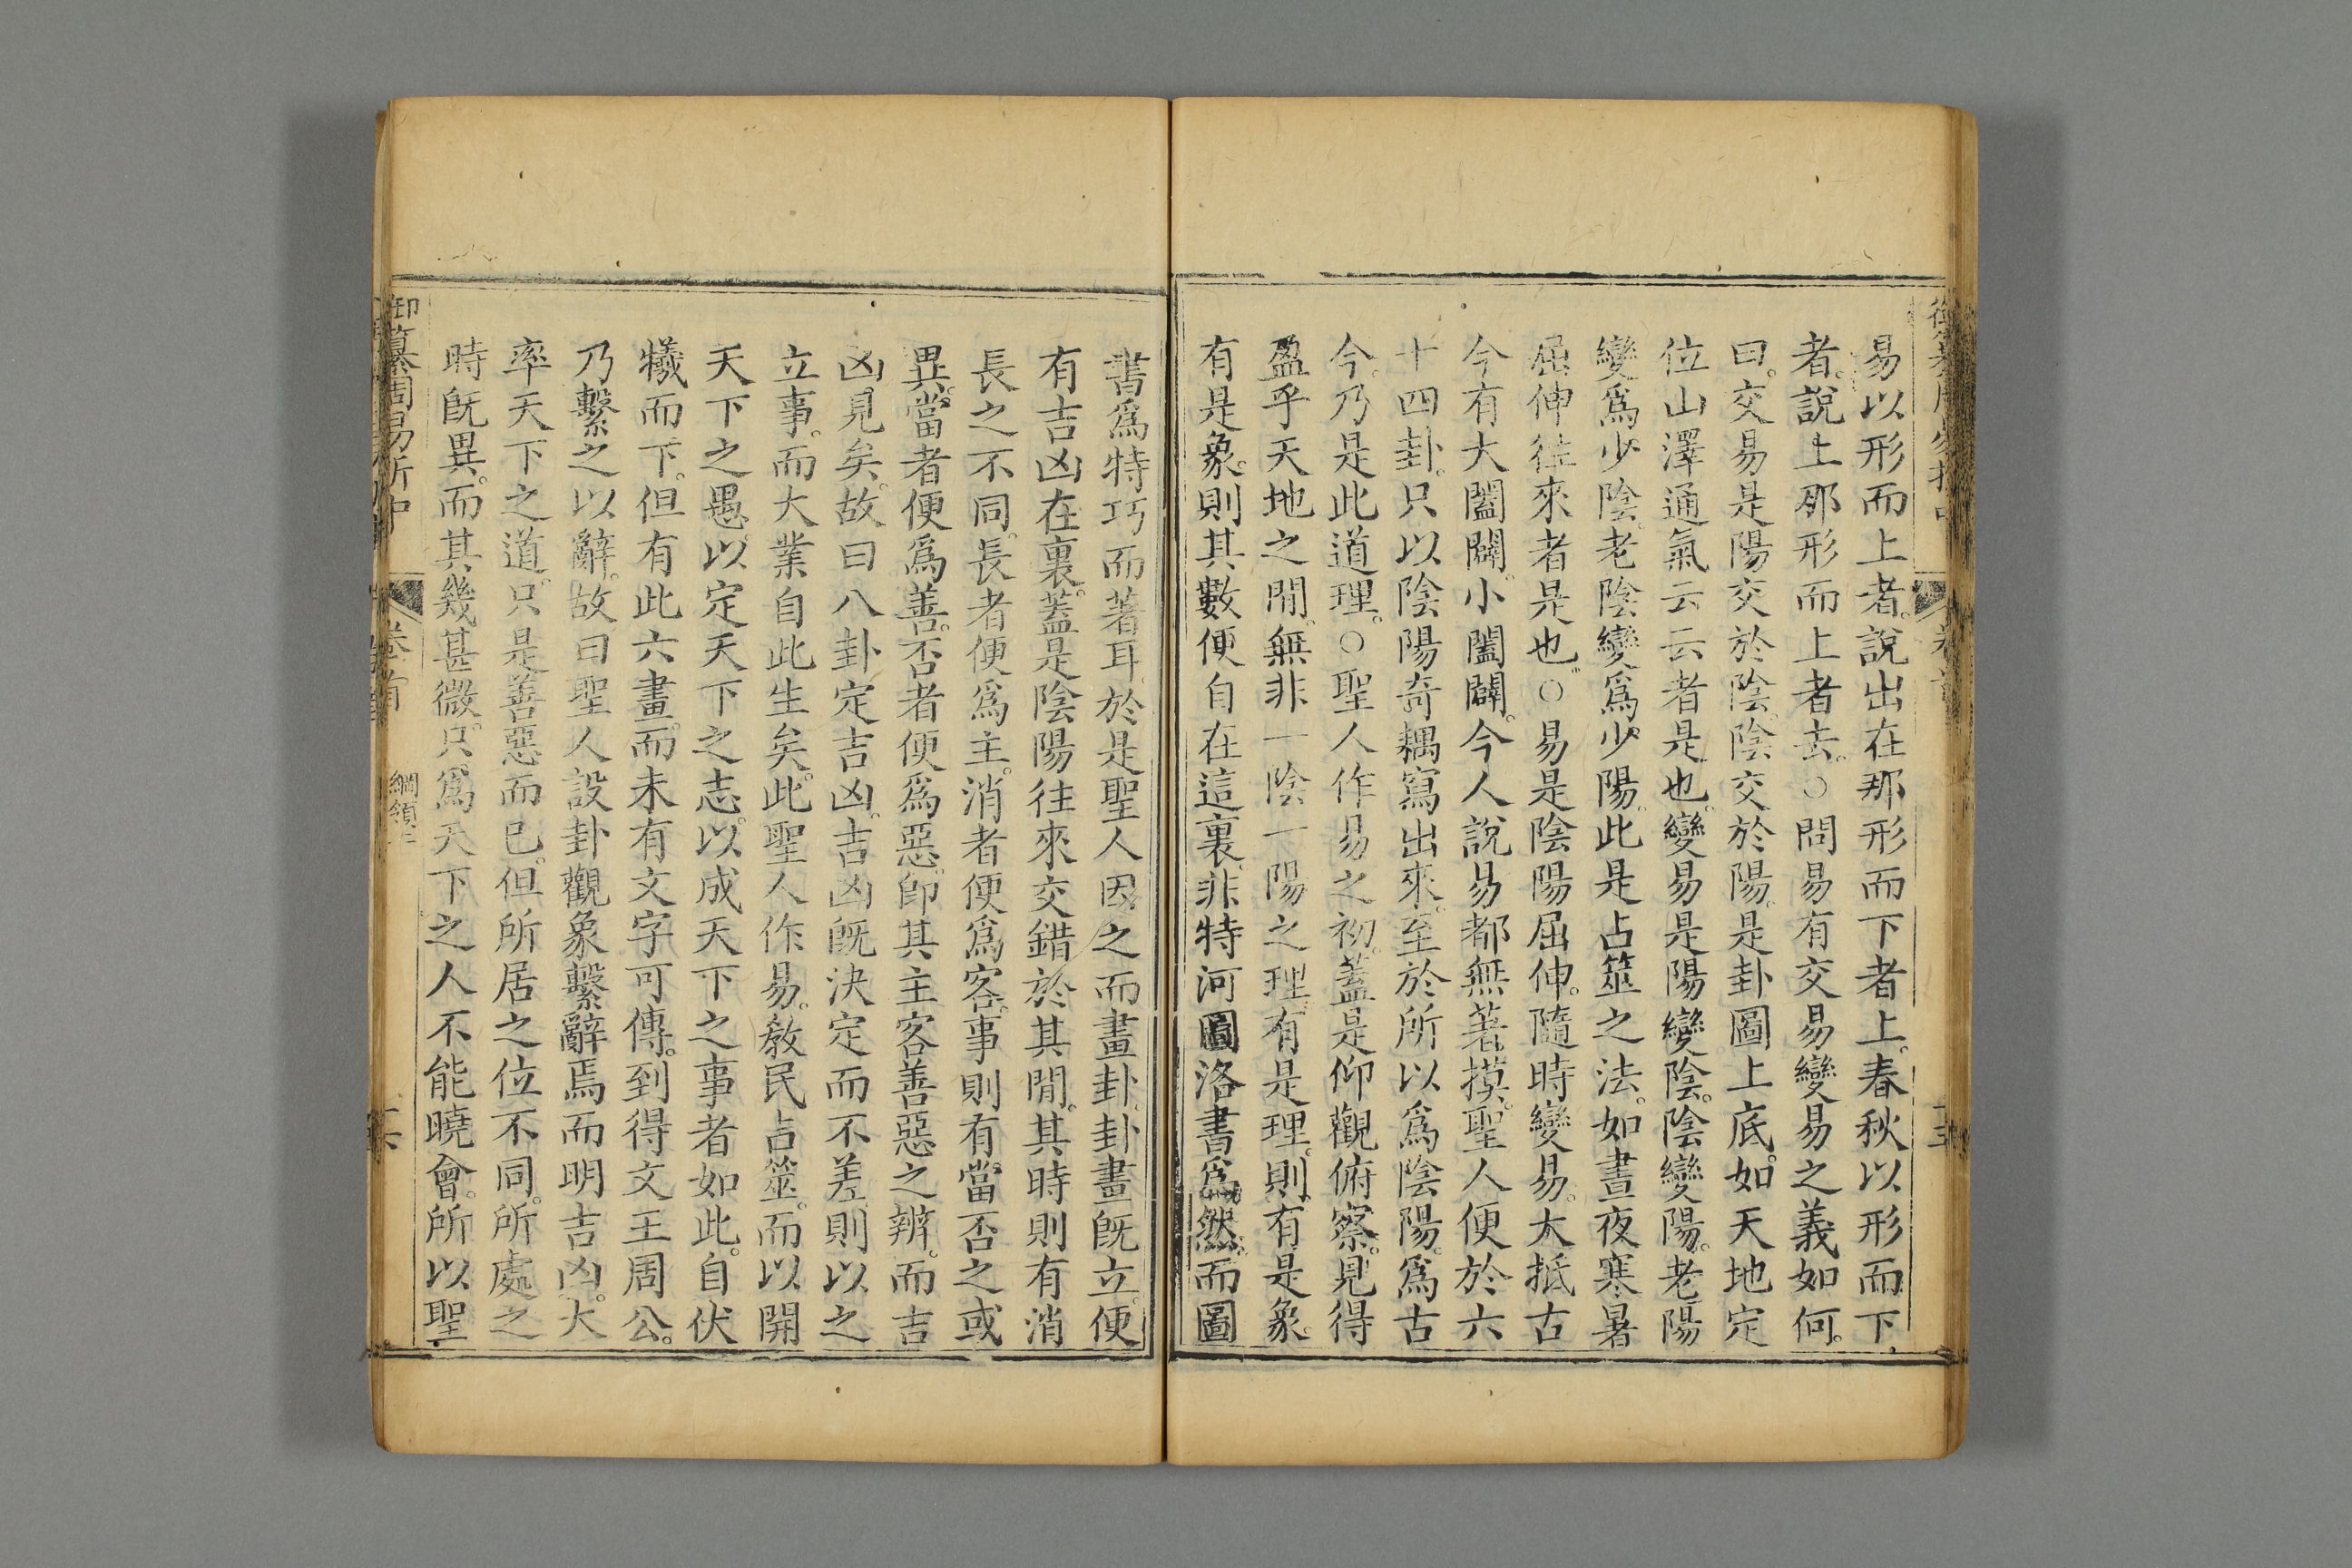 易以形而上者。說出在那形而下者上。春秋以形而下
者。說上那形而上者去。○問易有交易變易之義如何。
曰。交易是陽交於陰。陰交於陽。是卦圖上底。如天地定
位山澤通氣云云者是也。變易是陽變陰。陰變陽。老陽
變爲少陰。老陰變爲少陽。此是占筮之法。如晝夜寒暑
屈伸往來者是也。○易是陰陽屈伸。隨時變易。大抵古
今有大闔闢。小闔闢。今人說易都無著摸。聖人便於六
十四卦。只以陰陽奇耦寫出來。至於所以爲陰陽。爲古
今。乃是此道理。○聖人作易之初。蓋是仰觀俯察。見得
盈乎天地之閒。無非一陰一陽之理。有是理。則有是象。
有是象。則其數便自在這裏。非特河圖洛書爲然。而圖
書爲特巧而著耳。於是聖人因之而畫卦。卦畫旣立。便
有吉凶在裏。蓋是陰陽往來交錯於其閒。其時則有消
長之不同。長者便爲主。消者便爲客。事則有當否之或
異。當者便爲善。否者便爲惡。卽其主客善惡之辨。而吉
凶見矣。故曰八卦定吉凶。吉凶旣決定而不差。則以之
立事。而大業自此生矣。此聖人作易。敎民占筮。而以開
天下之愚。以定天下之志。以成天下之事者如此。自伏
犧而下。但有此六畫。而未有文字可傳。到得文王周公。
乃繫之以辭。故曰聖人設卦觀象繫辭焉而明吉凶。大
率天下之道。只是善惡而已。但所居之位不同。所處之
時旣異。而其幾甚微。只爲天下之人不能曉會。所以聖
御纂周易折中 卷首 綱領二